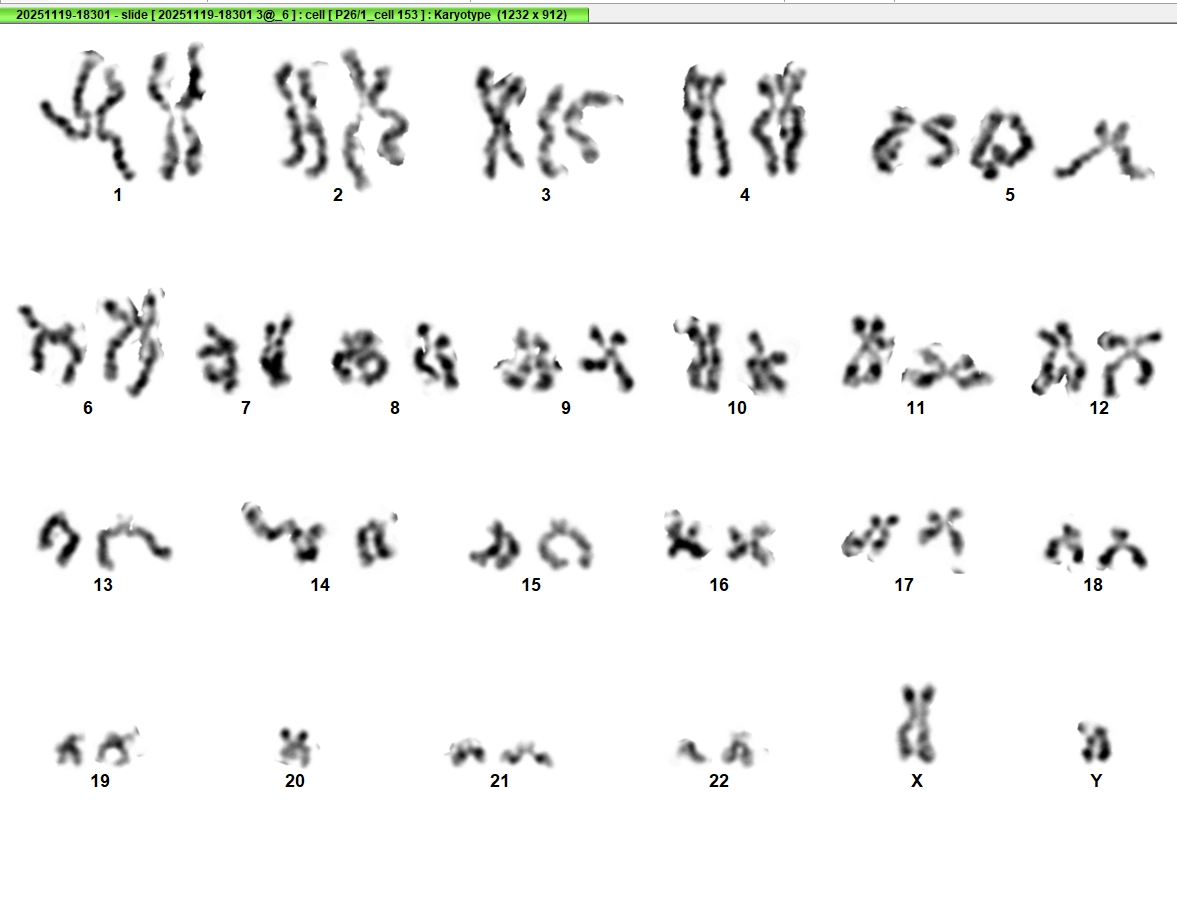 20251119-18301 - slide [ 20251119-18301 3@_6 ] : cell [ P26/1_cell 153 ] : Karyotype (1232 x 912)
1 2 3 4 5
6 7 8 9 10 11 12
13 14 15 16 17 18
19 20 21 22 X Y